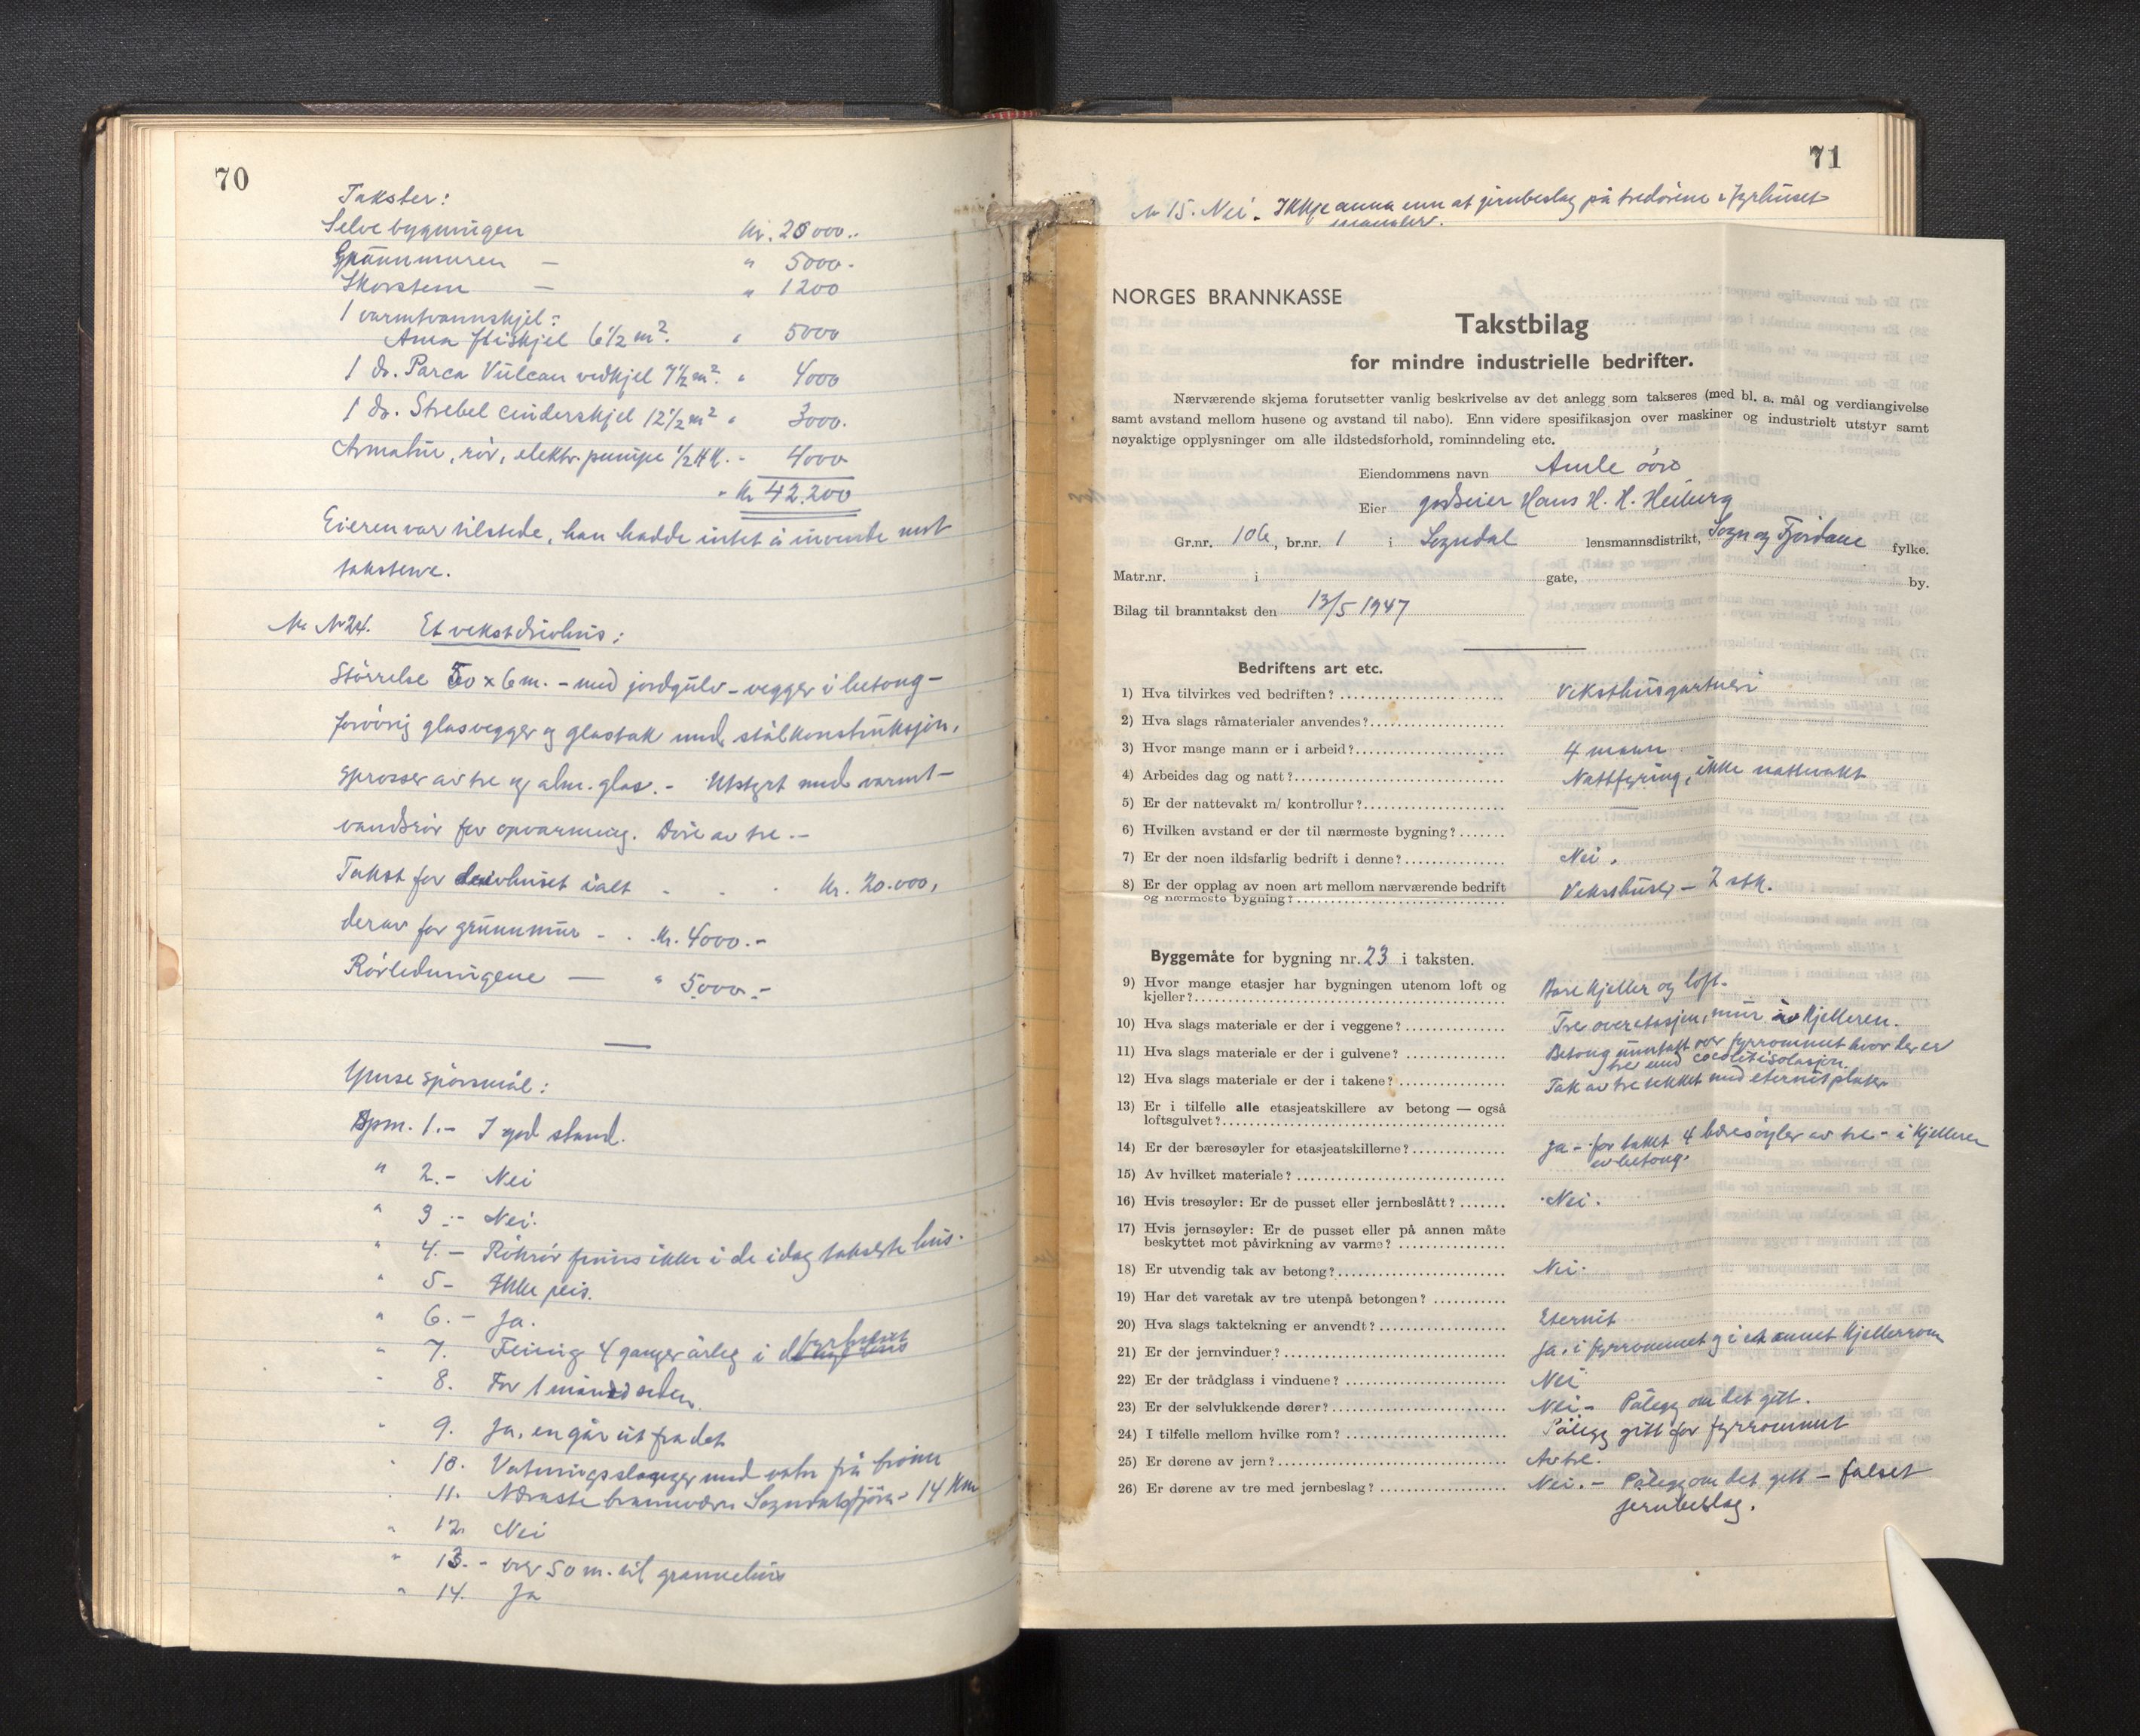 70
Takster:
Selve bygningen kr. 20000.-
Grunnmuren — " 5000.-
Skorstein — " 1200
1 varmtvannskjel:
Ama fliskjel 6 1/2 m². " 5000
1 do. Parca Vulcan vedkjel 7 1/2 m². " 4000
1 do. Strebel cinderskjel 12 1/2 m² " 3000.
Armatur, rör, elektr. pumpe 1/2 HK. - 4000
- kr 42.200
Eieren var tilstede, han hadde intet å invende mot
takstene.
Nr. 24. Et vekstdrivhus:
Störrelse 50 x 6 m. - med jordgulv - vegger i betong -
forövrig glasvegger og glastak med stålkonstruksjon,
sprosser av tre og alm. glas. - Utstyrt med varmt-
vandsrör for opvarming. Döre av tre. -
Takst for drivhuset ialt - - - kr. 20.000,
derav for grunnmur - . kr. 4000.-
Rörledningene — " 5000.-
Ymse spörsmål:
Spm. 1.- I god stand.
" 2.- Nei
" 3.- Nei.
" 4.- Rökrör finns ikke i de idag takserte hus.
" 5- Ikke peis.
" 6.- Ja.
" 7. Feiing 4 ganger årleg i fyrhuset
" 8. For 1 måned siden.
" 9. Ja, en går ut fra det
" 10. Vatningsslanger med vatn frå
" 11. Næraste brannvern Sogndalsfjöra - 14 Km
" 12. Nei
" 13.- over 50 m. til grannehus
" 14. Ja
71
Nr 15. Nei. Ikkje anna enn at jernbeslag på tredörene i fyrhuset
mangler.
NORGES BRANNKASSE
Takstbilag
for mindre industrielle bedrifter.
Nærværende skjema forutsetter vanlig beskrivelse av det anlegg som takseres (med bl. a. mål og verdiangivelse
samt avstand mellom husene og avstand til nabo). Enn videre spesifikasjon over maskiner og industrielt utstyr samt
nøyaktige opplysninger om alle ildstedsforhold, rominndeling etc.
Eiendommens navn Amle
Eier godseier Hans H. H. Heiberg
Gr.nr. 106, br.nr. 1 i Sogndal lensmannsdistrikt, Sogn og Fjordane fylke.
Matr.nr. i gate, by.
Bilag til branntakst den 13/5 1947
Bedriftens art etc.
1) Hva tilvirkes ved bedriften? Veksthusgartneri
2) Hva slags råmaterialer anvendes?
3) Hvor mange mann er i arbeid? 4 mann
4) Arbeides dag og natt? Nattfyring, ikke nattevakt
5) Er der nattevakt m/ kontrollur? —
6) Hvilken avstand er der til nærmeste bygning?
7) Er der noen ildsfarlig bedrift i denne? Nei.
8) Er der opplag av noen art mellom nærværende bedrift
og nærmeste bygning? Veksthuser - 2 stk.
Byggemåte for bygning nr. 23 i taksten.
9) Hvor mange etasjer har bygningen utenom loft og
kjeller? Bare kjeller og loft.
10) Hva slags materiale er der i veggene? Tre overetasjen, mur i kjelleren.
11) Hva slags materiale er der i gulvene? Betong unntatt over fyrrommet hvor der er
tre med cocolitisolasjon.
12) Hva slags materiale er der i takene? Tak av tre tekket med eternitplater
13) Er i tilfelle alle etasjeatskillere av betong — også
loftsgulvet?
14) Er der bæresøyler for etasjeatskillerne? Ja - for taket 4 bæresöyler av tre - i kjelleren
av betong.
15) Av hvilket materiale?
16) Hvis tresøyler: Er de pusset eller jernbeslått? Nei.
17) Hvis jernsøyler: Er de pusset eller på annen måte
beskyttet mot påvirkning av varme?
18) Er utvendig tak av betong? Nei.
19) Har det varetak av tre utenpå betongen?
20) Hva slags taktekning er anvendt? Eternit
21) Er der jernvinduer? Ja, i fyrrommet og i et annet kjellerrom
22) Er der trådglass i vinduene? Nei
23) Er der selvlukkende dører? Nei - Pålegg om det gitt.
24) I tilfelle mellom hvilke rom? Pålegg gitt for fyrrommet
25) Er dørene av jern? Av tre.
26) Er dørene av tre med jernbeslag? Nei. - Pålegg om det gitt - falset
jernbeslag.